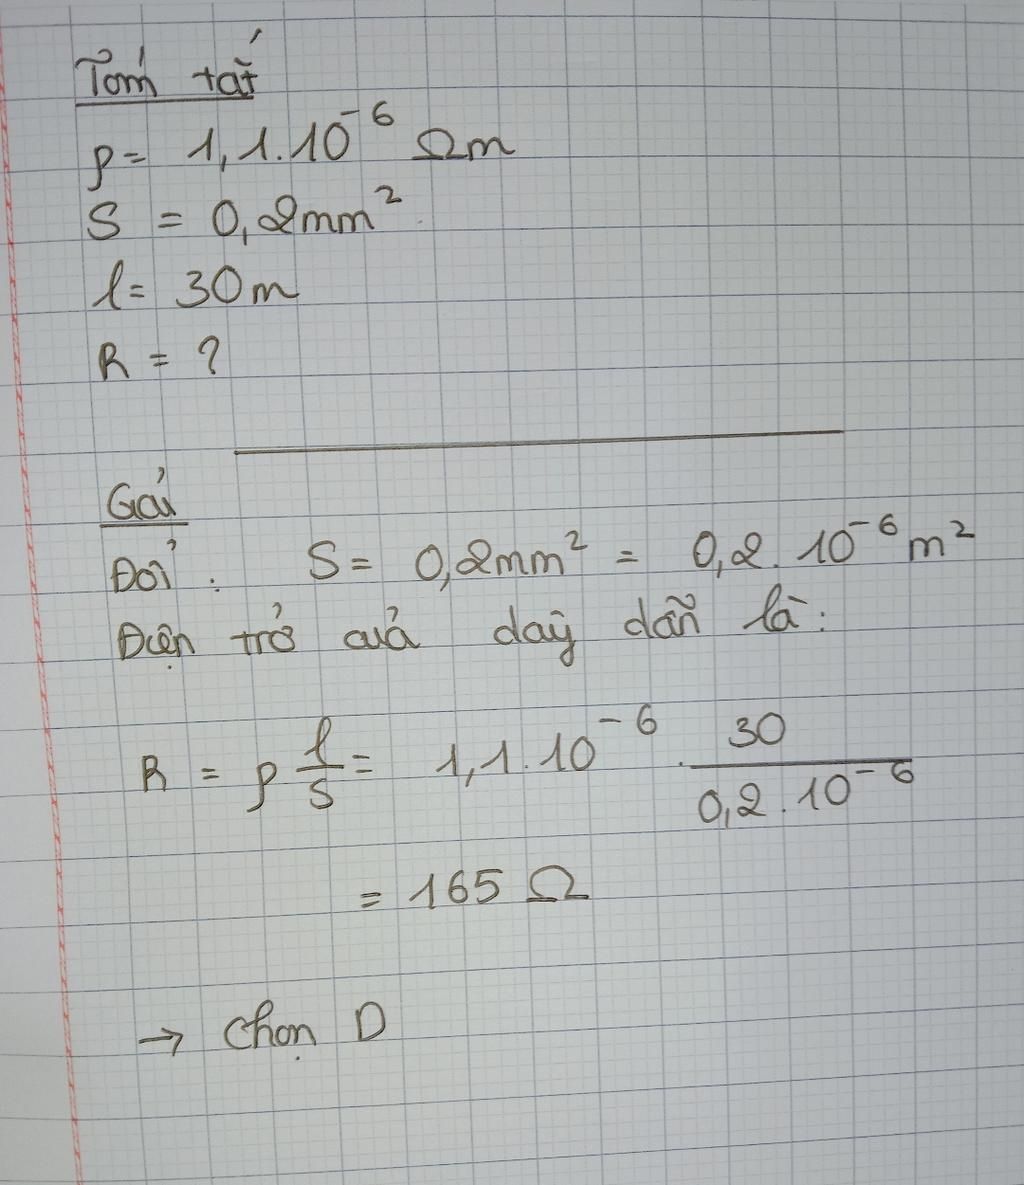 Tóm tắt
ρ = 1,1.10⁻⁶ Ωm
S = 0,2mm²
l = 30m
R = ?
Giải
Đổi: S = 0,2mm² = 0,2.10⁻⁶ m²
Điện trở của dây dẫn là:
R = ρ l/S = 1,1.10⁻⁶ . 30/0,2.10⁻⁶
= 165 Ω
→ Chọn D